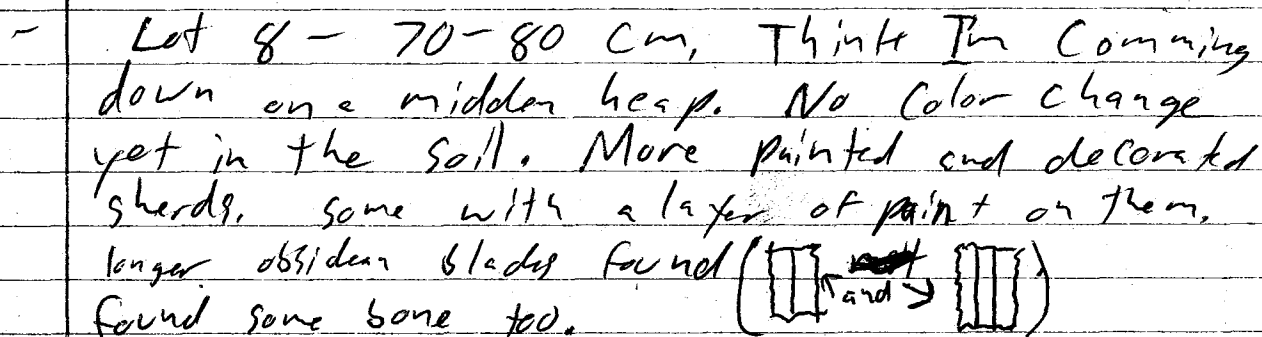 - Lot 8 - 70-80 cm, Think I'm Comming
down on a midden heap. No Color change
yet in the soil. More painted and decorated
sherds. some with a layer of paint on them.
longer obsidean blades found ( and )
found some bone too.